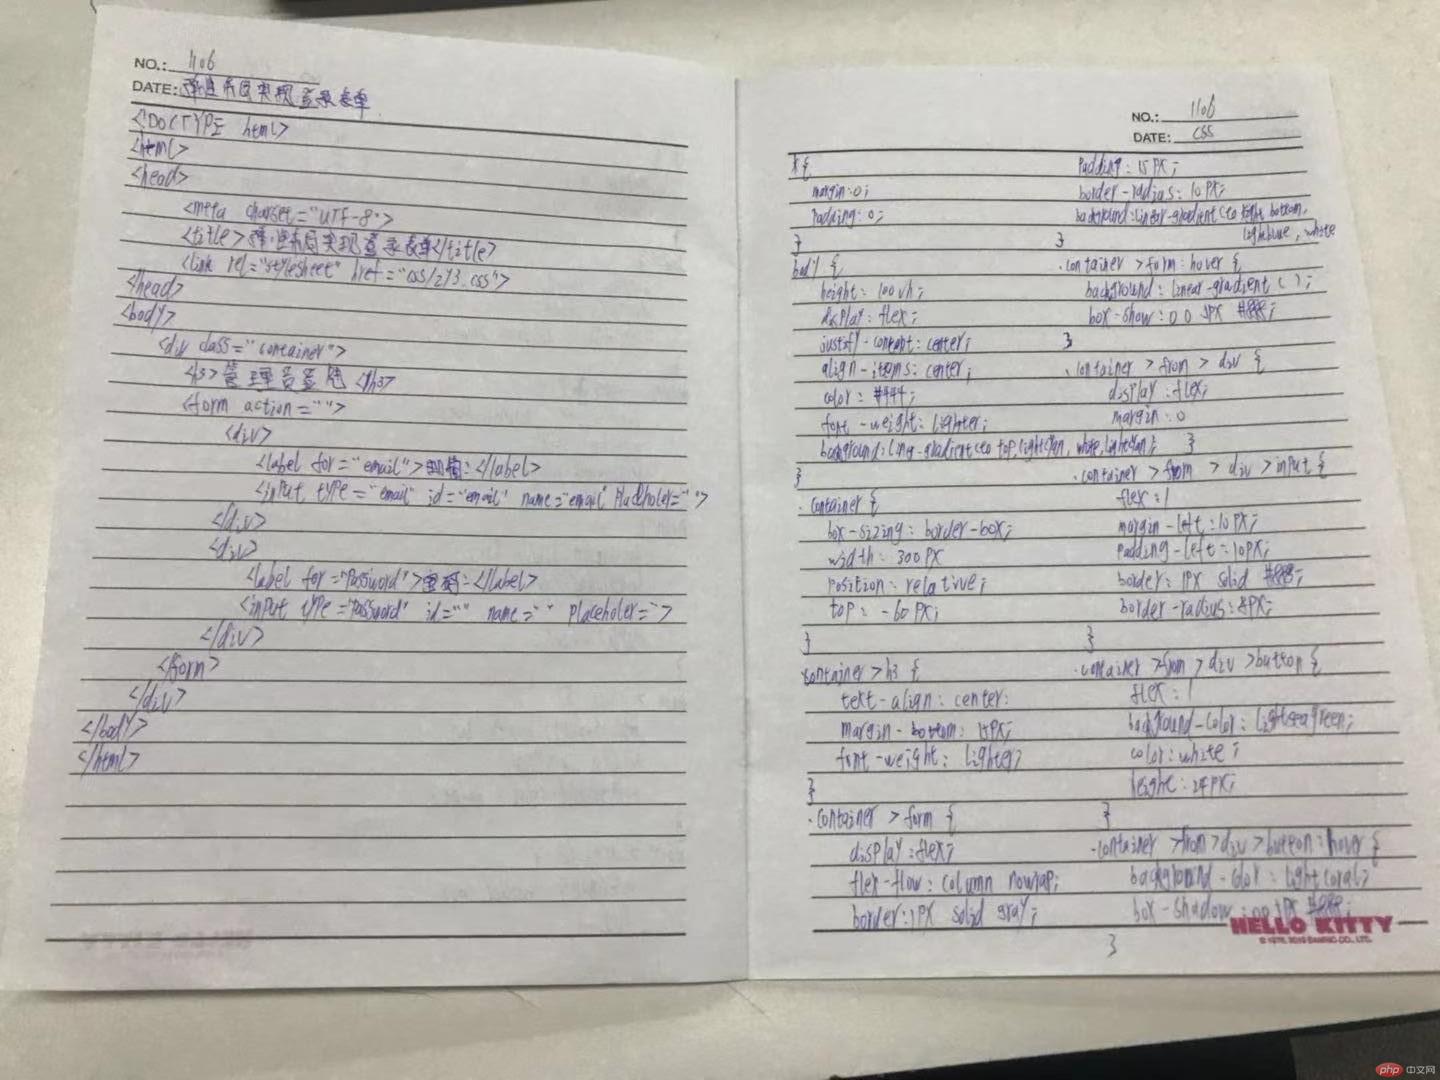 NO.: 1106
DATE: 弹性布局实现登录表单
<!DOCTYPE html>
<html>
<head>
<meta charset="UTF-8">
<title>弹性布局实现登录表单</title>
<link rel="stylesheet" href="css/213.css">
</head>
<body>
<div class="container">
<h3>管理员登陆</h3>
<form action="">
<div>
<label for="email">邮箱:</label>
<input type="email" id="email" name="email" placeholer="">
</div>
<div>
<label for="Password">密码:</label>
<input type="Password" id="" name="" Placeholer="">
</div>
</form>
</div>
</body>
</html>
NO.: 1106
DATE: CSS
*{
margin:0;
Padding:0;
}
body {
height: 100vh;
display: flex;
justify-content: center;
align-items: center;
color: #444;
font-weight: lighter;
background: linear-gradient(to top, lightcyan, white, lightcyan);
}
.container {
box-sizing: border-box;
width: 300PX
Position: relative;
top: -60PX;
}
container > h3 {
text-align: center:
margin-bottom: 15PX;
font-weight: lighter;
}
.container > form {
display: flex;
flex-flow: column nowrap;
border: 1PX solid gray;
Padding: 15PX;
border-radius: 10PX;
background: linear-gradient(to right bottom,
lightblue, white
}
.container > form:hover {
background: linear-gradient();
box-show: 0 0 5PX #888;
}
.container > from > div {
display: flex;
margin: 0
}
.container > from > div > input {
flex: 1
margin-left: 10PX;
Padding-left: 10PX;
border: 1PX solid #888;
border-radius: 8PX;
}
.container > from > div > button {
flex: 1
background-color: lightseagreen;
color: white;
height: 24PX;
}
.container > from > div > button:hover {
background-color: lightcoral;
box-shadow: 0 0 1PX #888;
}
HELLO KITTY
SANRIO CO., LTD.
php 中文网